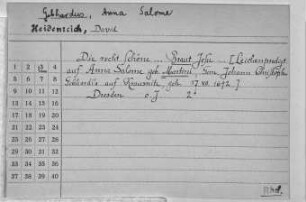 Gebhardus, Anna Salome
Heidenreich, David
Die recht schöne ... Braut Jesu ... [Leichenpredigt
auf Anna Salome geb. Martini, Frau Johann Christoph
auf 1672.]
Dresden o. J. 2°
1 2 3 4
5 6 7 8
9 10 11 12
13 14 15 16
17 18 19 20
21 22 23 24
25 26 27 28
29 30 31 32
33 34 35 36
37 38 39 40